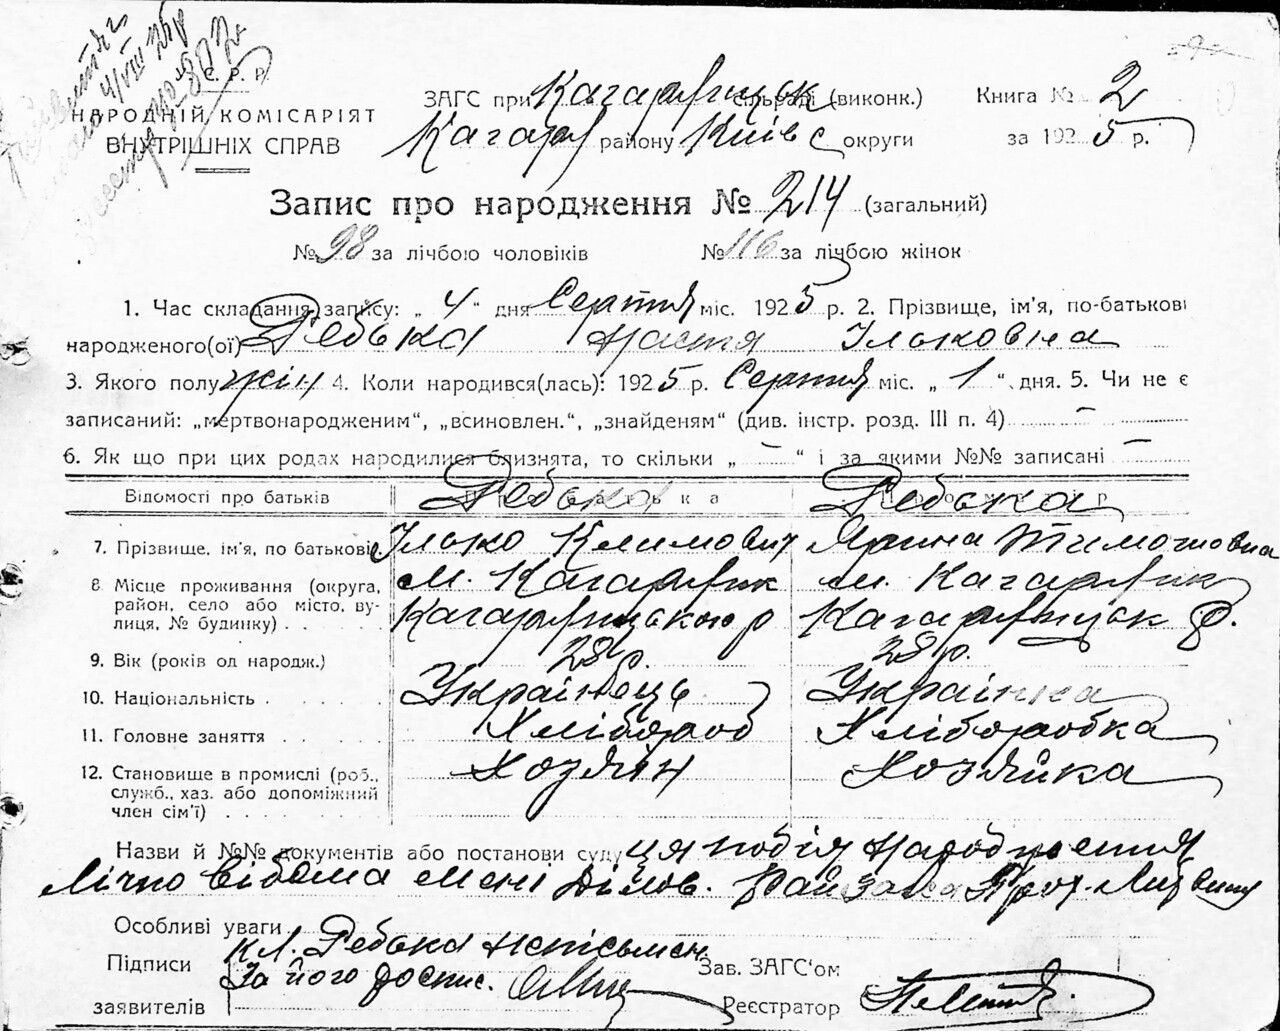 С. Р. Р.
НАРОДНІЙ КОМІСАРІЯТ
ВНУТРІШНІХ СПРАВ
4/VIII 25 р
ЗАГС при Кагарлицьк сільраді (виконк.) Книга № 2
Кагарл району Київс округи за 1925 р.
Запис про народження № 214 (загальний)
№ 98 за лічбою чоловіків № 116 за лічбою жінок
1. Час складання запису: „ 4 “ дня Серпня міс. 1925 р. 2. Прізвище, ім'я, по-батькові
народженого(ої) Редька Настя Ільковна
3. Якого полу жін 4. Коли народився(лась): 1925 р. Серпня міс. „ 1 “ дня. 5. Чи не є
записаний: „мертвонародженим“, „всиновлен.“, „знайденям“ (див. інстр. розд. III п. 4) –
6. Як що при цих родах народилися близнята, то скільки „ – “ і за якими №№ записані –
Відомості про батьків Редька Редька
7. Прізвище, ім'я, по батькові Ілько Климович Ярина Тимошовна
8 Місце проживання (округа, м. Кагарлик м. Кагарлик
район, село або місто, ву- Кагарлицького р Кагарлицьк р.
лиця, № будинку) . . . .
9. Вік (років од народж.) 28 р. 28 р.
10. Національність . . . . . Українець Українка
11. Головне заняття . . . . . Хлібороб Хліборобка
12. Становище в промислі (роб., Хозяїн Хозяйка
служб., хаз. або допоміжний
член сім'ї) . . . . . . . .
Назви й №№ документів або постанови суду ця подія народження
лічно відома мені Ділов. Райзагса Прох. Литвину
Особливі уваги
Підписи Кл. Редька неписьмен. Зав. ЗАГС'ом
За його роспис.
заявителів Реєстратор